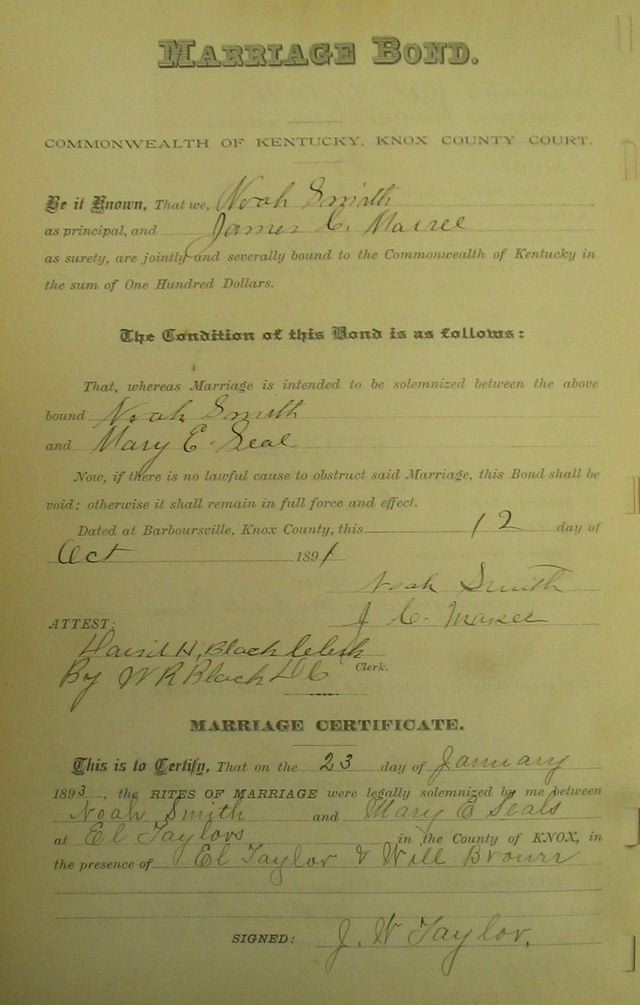 MARRIAGE BOND.
COMMONWEALTH OF KENTUCKY. KNOX COUNTY COURT.
Be it Known, That we, Noah Smith
as principal, and James C.
as surety, are jointly and severally bound to the Commonwealth of Kentucky in
the sum of One Hundred Dollars.
The Condition of this Bond is as follows:
That, whereas Marriage is intended to be solemnized between the above
bound Noah Smith
and Mary E. Seal
Now, if there is no lawful cause to obstruct said Marriage, this Bond shall be
void; otherwise it shall remain in full force and effect.
Dated at Barboursville, Knox County, this 12 day of
Oct 1891
Noah Smith
J C.
ATTEST:
David H, Black Clerk
By W R Black D C Clerk.
MARRIAGE CERTIFICATE.
This is to Certify, That on the 23 day of January
1893, the RITES OF MARRIAGE were legally solemnized by me between
Noah Smith and Mary E Seals
at El Taylors in the County of KNOX, in
the presence of El Taylor & Will Brown
SIGNED: J. W Taylor.